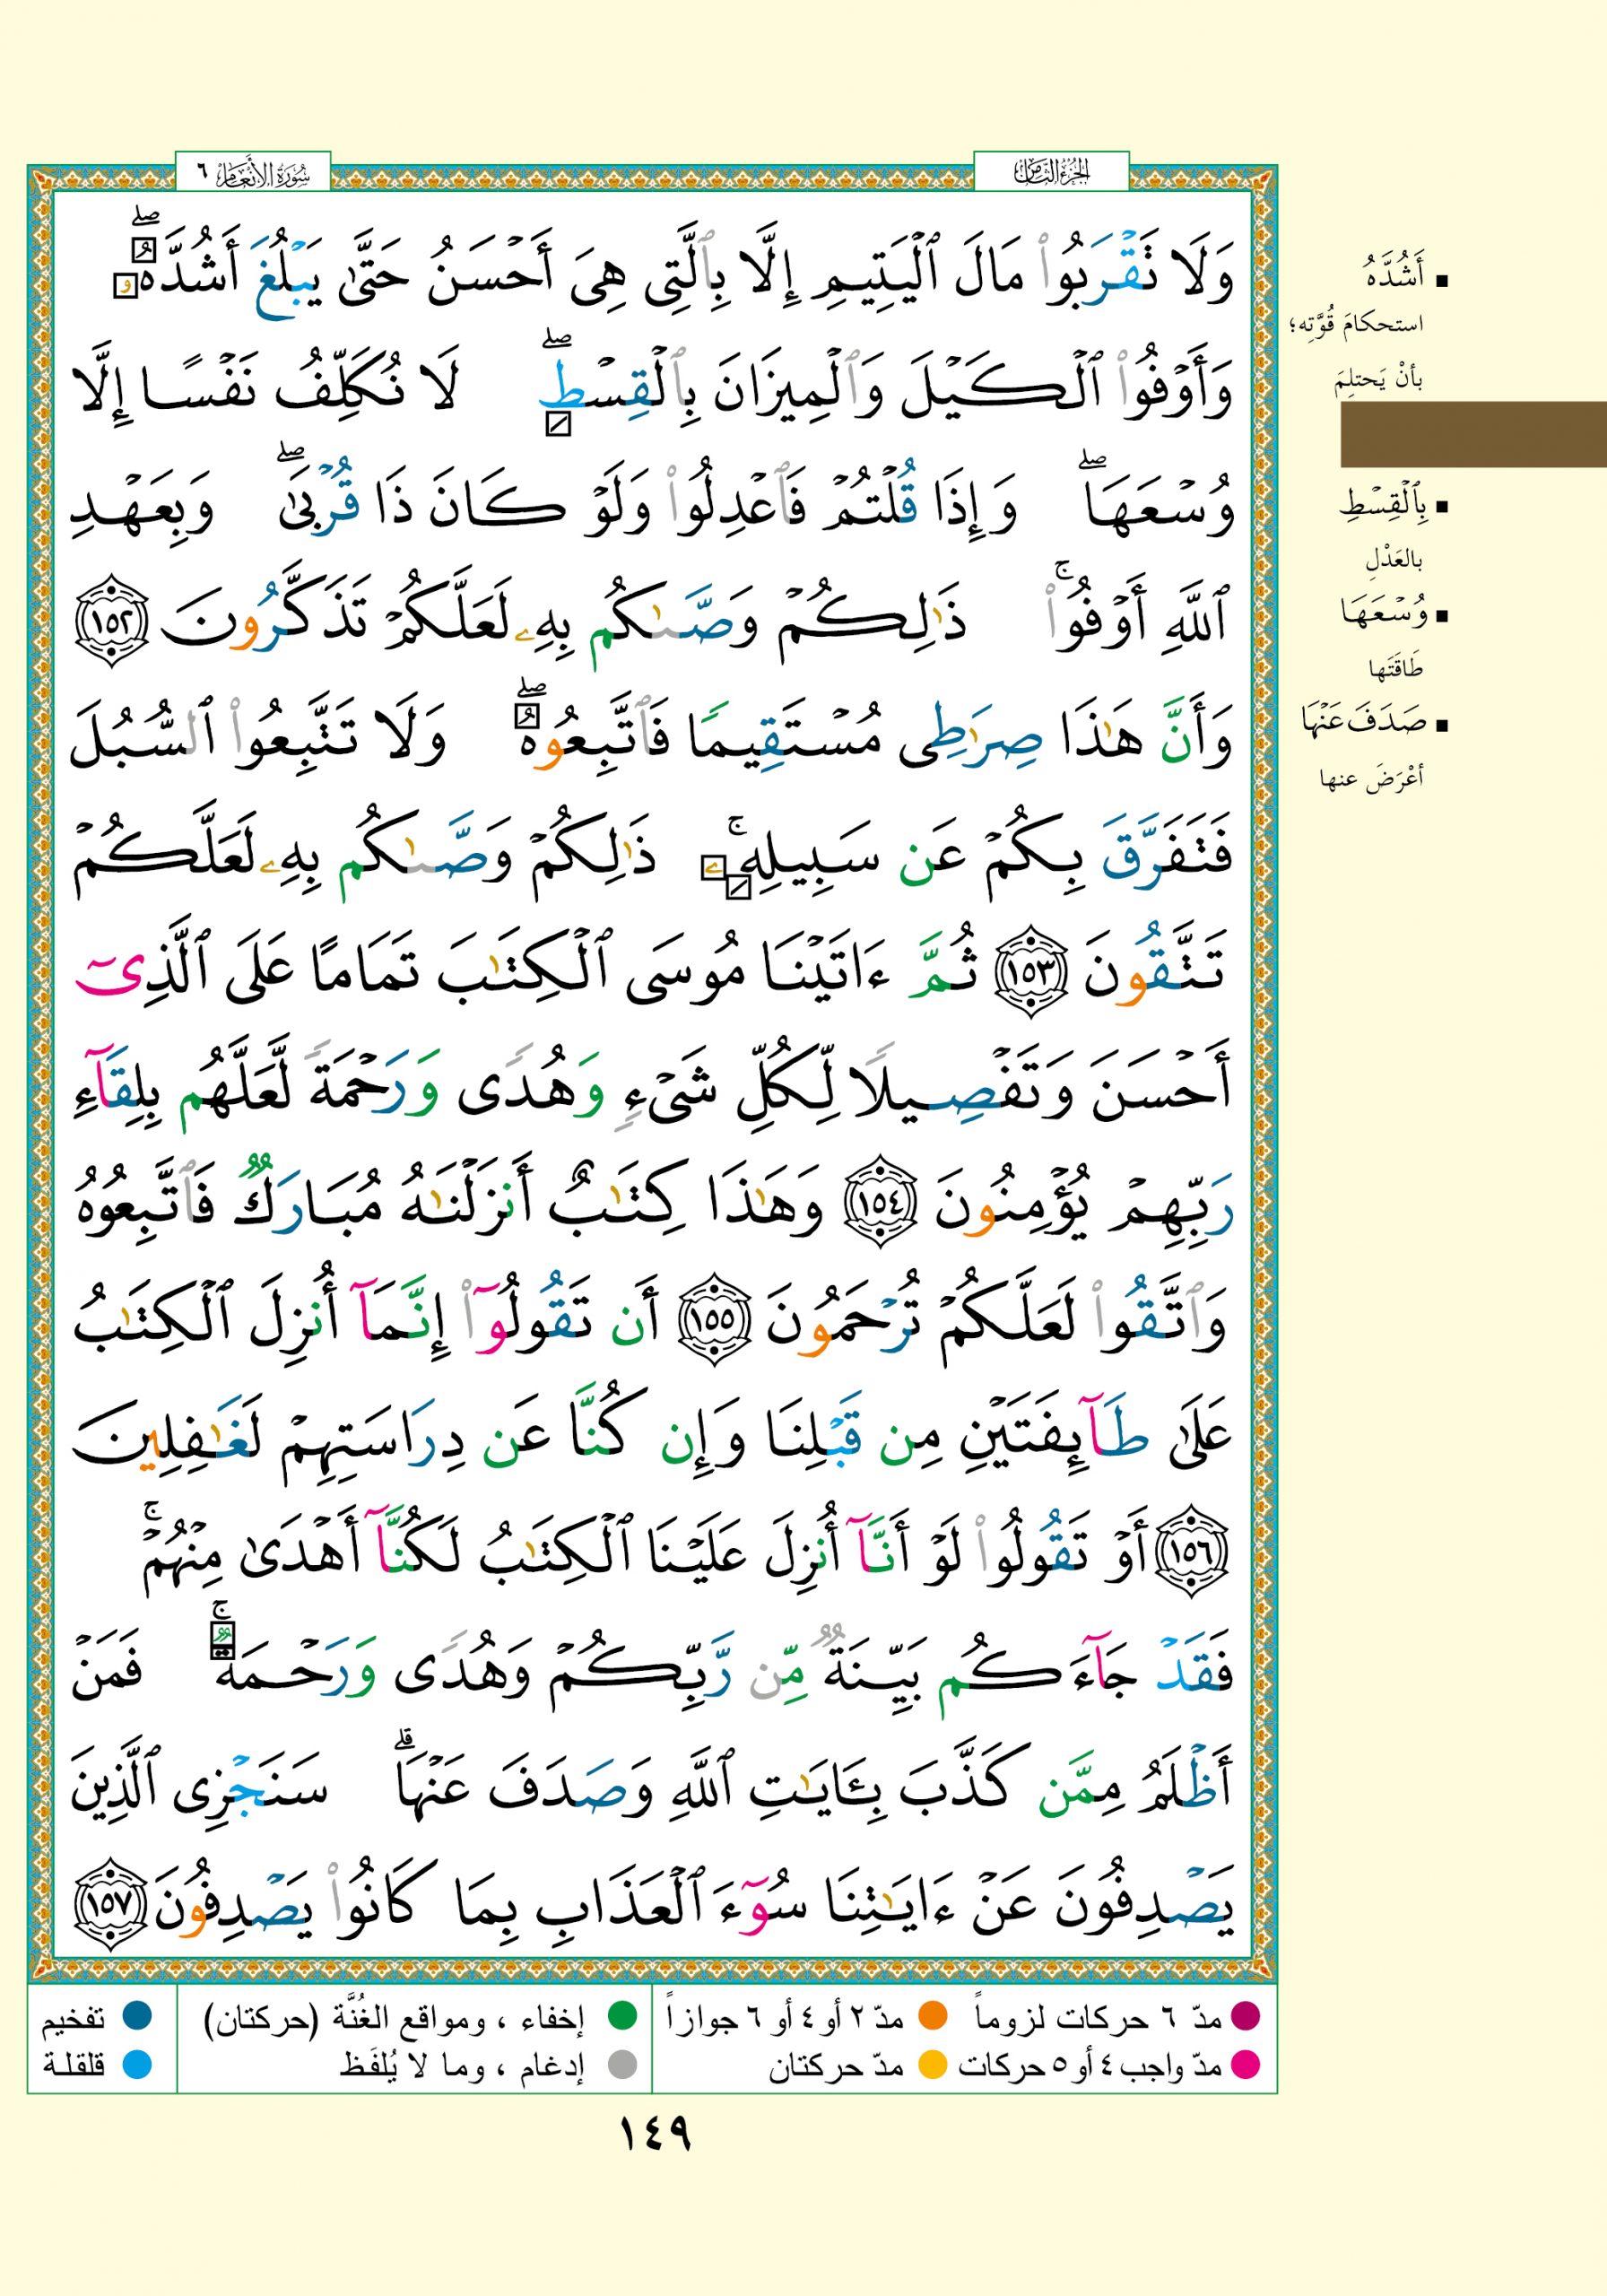 الجزء الثامن
سورة الأنعام ٦
وَلَا تَقْرَبُوا۟ مَالَ ٱلْيَتِيمِ إِلَّا بِٱلَّتِى هِىَ أَحْسَنُ حَتَّىٰ يَبْلُغَ أَشُدَّهُۥ ۖ
وَأَوْفُوا۟ ٱلْكَيْلَ وَٱلْمِيزَانَ بِٱلْقِسْطِ ۖ لَا نُكَلِّفُ نَفْسًا إِلَّا
وُسْعَهَا ۖ وَإِذَا قُلْتُمْ فَٱعْدِلُوا۟ وَلَوْ كَانَ ذَا قُرْبَىٰ ۖ وَبِعَهْدِ
ٱللَّهِ أَوْفُوا۟ ۚ ذَٰلِكُمْ وَصَّىٰكُم بِهِۦ لَعَلَّكُمْ تَذَكَّرُونَ ١٥٢
وَأَنَّ هَٰذَا صِرَٰطِى مُسْتَقِيمًا فَٱتَّبِعُوهُ ۖ وَلَا تَتَّبِعُوا۟ ٱلسُّبُلَ
فَتَفَرَّقَ بِكُمْ عَن سَبِيلِهِۦ ۚ ذَٰلِكُمْ وَصَّىٰكُم بِهِۦ لَعَلَّكُمْ
تَتَّقُونَ ١٥٣ ثُمَّ ءَاتَيْنَا مُوسَى ٱلْكِتَٰبَ تَمَامًا عَلَى ٱلَّذِىٓ
أَحْسَنَ وَتَفْصِيلًا لِّكُلِّ شَىْءٍ وَهُدًى وَرَحْمَةً لَّعَلَّهُم بِلِقَآءِ
رَبِّهِمْ يُؤْمِنُونَ ١٥٤ وَهَٰذَا كِتَٰبٌ أَنزَلْنَٰهُ مُبَارَكٌ فَٱتَّبِعُوهُ
وَٱتَّقُوا۟ لَعَلَّكُمْ تُرْحَمُونَ ١٥٥ أَن تَقُولُوٓا۟ إِنَّمَآ أُنزِلَ ٱلْكِتَٰبُ
عَلَىٰ طَآئِفَتَيْنِ مِن قَبْلِنَا وَإِن كُنَّا عَن دِرَاسَتِهِمْ لَغَٰفِلِينَ
١٥٦ أَوْ تَقُولُوا۟ لَوْ أَنَّآ أُنزِلَ عَلَيْنَا ٱلْكِتَٰبُ لَكُنَّآ أَهْدَىٰ مِنْهُمْ ۚ
فَقَدْ جَآءَكُم بَيِّنَةٌ مِّن رَّبِّكُمْ وَهُدًى وَرَحْمَةٌ ۚ فَمَنْ
أَظْلَمُ مِمَّن كَذَّبَ بِـَٔايَٰتِ ٱللَّهِ وَصَدَفَ عَنْهَا ۗ سَنَجْزِى ٱلَّذِينَ
يَصْدِفُونَ عَنْ ءَايَٰتِنَا سُوٓءَ ٱلْعَذَابِ بِمَا كَانُوا۟ يَصْدِفُونَ ١٥٧
أَشُدَّهُ
استحكامَ قُوَّتِه؛
بأنْ يَحتلِمَ
بِٱلْقِسْطِ
بالعَدْلِ
وُسْعَهَا
طَاقَتَها
صَدَفَ عَنْهَا
أعْرَضَ عنها
مدّ ٦ حركات لزوماً
مدّ ٢ أو ٤ أو ٦ جوازاً
مدّ واجب ٤ أو ٥ حركات
مدّ حركتان
إخفاء ، ومواقع الغُنَّة (حركتان)
إدغام ، وما لا يُلفَظ
تفخيم
قلقلة
١٤٩